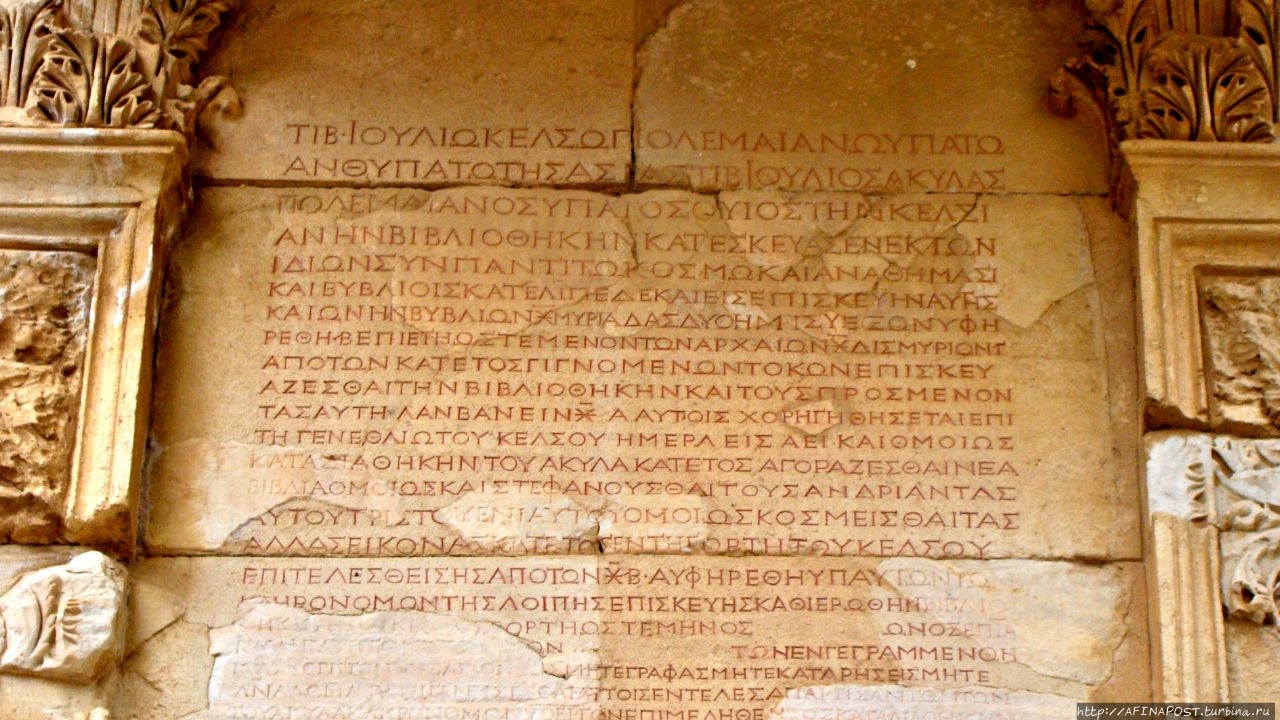 ΤΙΒ·ΙΟΥΛΙΩΚΕΛΣΩΠΟΛΕΜΑΙΑΝΩΥΠΑΤΩ
ΑΝΘΥΠΑΤΟΤΗΣΑΣΙΑΣΤΙΒΙΟΥΛΙΟΣΑΚΥΛΑΣ
ΠΟΛΕΜΑΙΑΝΟΣΥΠΑΤΟΣΟΥΙΟΣΤΗΝΚΕΛΣΙ
ΑΝΗΝΒΙΒΛΙΟΘΗΚΗΝΚΑΤΕΣΚΕΥΑΣΕΝΕΚΤΩΝ
ΙΔΙΩΝΣΥΝΠΑΝΤΙΤΩΚΟΣΜΩΚΑΙΑΝΑΘΗΜΑΣΙ
ΚΑΙΒΥΒΛΙΟΙΣΚΑΤΕΛΙΠΕΔΕΚΑΙΕΙΣΕΠΙΣΚΕΥΗΝΑΥΤΗΣ
ΚΑΙΩΝΗΝΒΥΒΛΙΩΝ⚹ΜΥΡΙΑΔΑΣΔΥΟΗΜΙΣΥΕΞΩΝΥΦΗ
ΡΕΘΗ⚹ΒΕΠΙΕΤΗΩΣΤΕΜΕΝΟΝΤΩΝΑΡΧΑΙΩΝ⚹ΔΙΣΜΥΡΙΩΝΤ
ΑΠΟΤΩΝΚΑΤΕΤΟΣΓΙΓΝΟΜΕΝΩΝΤΟΚΩΝΕΠΙΣΚΕΥ
ΑΖΕΣΘΑΙΤΗΝΒΙΒΛΙΟΘΗΚΗΝΚΑΙΤΟΥΣΠΡΟΣΜΕΝΟΝ
ΤΑΣΑΥΤΗΛΑΝΒΑΝΕΙΝ⚹ ΑΑΥΤΟΙΣΧΟΡΗΓΗΘΗΣΕΤΑΙΕΠΙ
ΤΗΓΕΝΕΘΛΙΩΤΟΥΚΕΛΣΟΥΗΜΕΡΑΕΙΣΑΕΙΚΑΙΟΜΟΙΩΣ
ΚΑΤΑΔΙΑΘΗΚΗΝΤΟΥΑΚΥΛΑΚΑΤΕΤΟΣΑΓΟΡΑΖΕΣΘΑΙΝΕΑ
ΒΙΒΛΙΑΟΜΟΙΩΣΚΑΙΣΤΕΦΑΝΟΥΣΘΑΙΤΟΥΣΑΝΔΡΙΑΝΤΑΣ
ΑΥΤΟΥΤΡΙΣΤΟΥΕΝΙΑΥΤΟΥΟΜΟΙΩΣΚΟΣΜΕΙΣΘΑΙΤΑΣ
ΑΛΛΑΣΕΙΚΟΝΑΣΚΑΤΕΤΟΣΕΝΤΗΕΟΡΤΗΤΟΥΚΕΛΣΟΥ
ΕΠΙΤΕΛΕΣΘΕΙΣΗΣΑΠΟΤΩΝ⚹Β·ΑΥΦΗΡΕΘΗΥΠΑΥΤΩΝΤΩΝ
ΚΛΗΡΟΝΟΜΩΝΤΗΣΛΟΙΠΗΣΕΠΙΣΚΕΥΗΣΚΑΘΙΕΡΩΘΗΗΒΙΒΛΙΟ
ΕΟΡΤΗΩΣΤΕΜΗΝΟΣ ΩΝΟΣΕΠΙΑ
ΤΩΝΕΝΓΕΓΡΑΜΜΕΝΩΝ
ΜΗΤΕΓΡΑΦΑΣΜΗΤΕΚΑΤΑΡΗΣΕΙΣΜΗΤΕ
ΕΝΤΕΛΕΣΑΠΑΡΤΙΣΑΝΤΩΝΤΩΝ
ΕΠΙΜΕΛΗΘΕΝΤΟΣ
http://AFINAPOST.turbina.ru